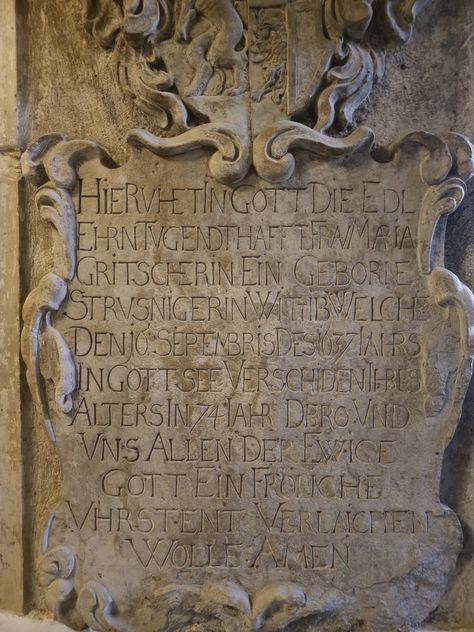 HIE RVHET IN GOTT DIE EDL
EHRN TVGENDTHAFFTE FRAV MARIA
GRITSCHERIN EIN GEBORNE
STRVSNIGERIN WITTIB WELCHE
DEN 16 SEPTEMBRIS DES 1637 IAHRS
IN GOTT SEE VERSCHIDEN IHRES
ALTERS IN 74 IAHR DERO VND
VNS ALLEN DER EWIGE
GOTT EIN FRÖLICHE
VHRSTENT VERLAICHEN
WOLLE AMEN